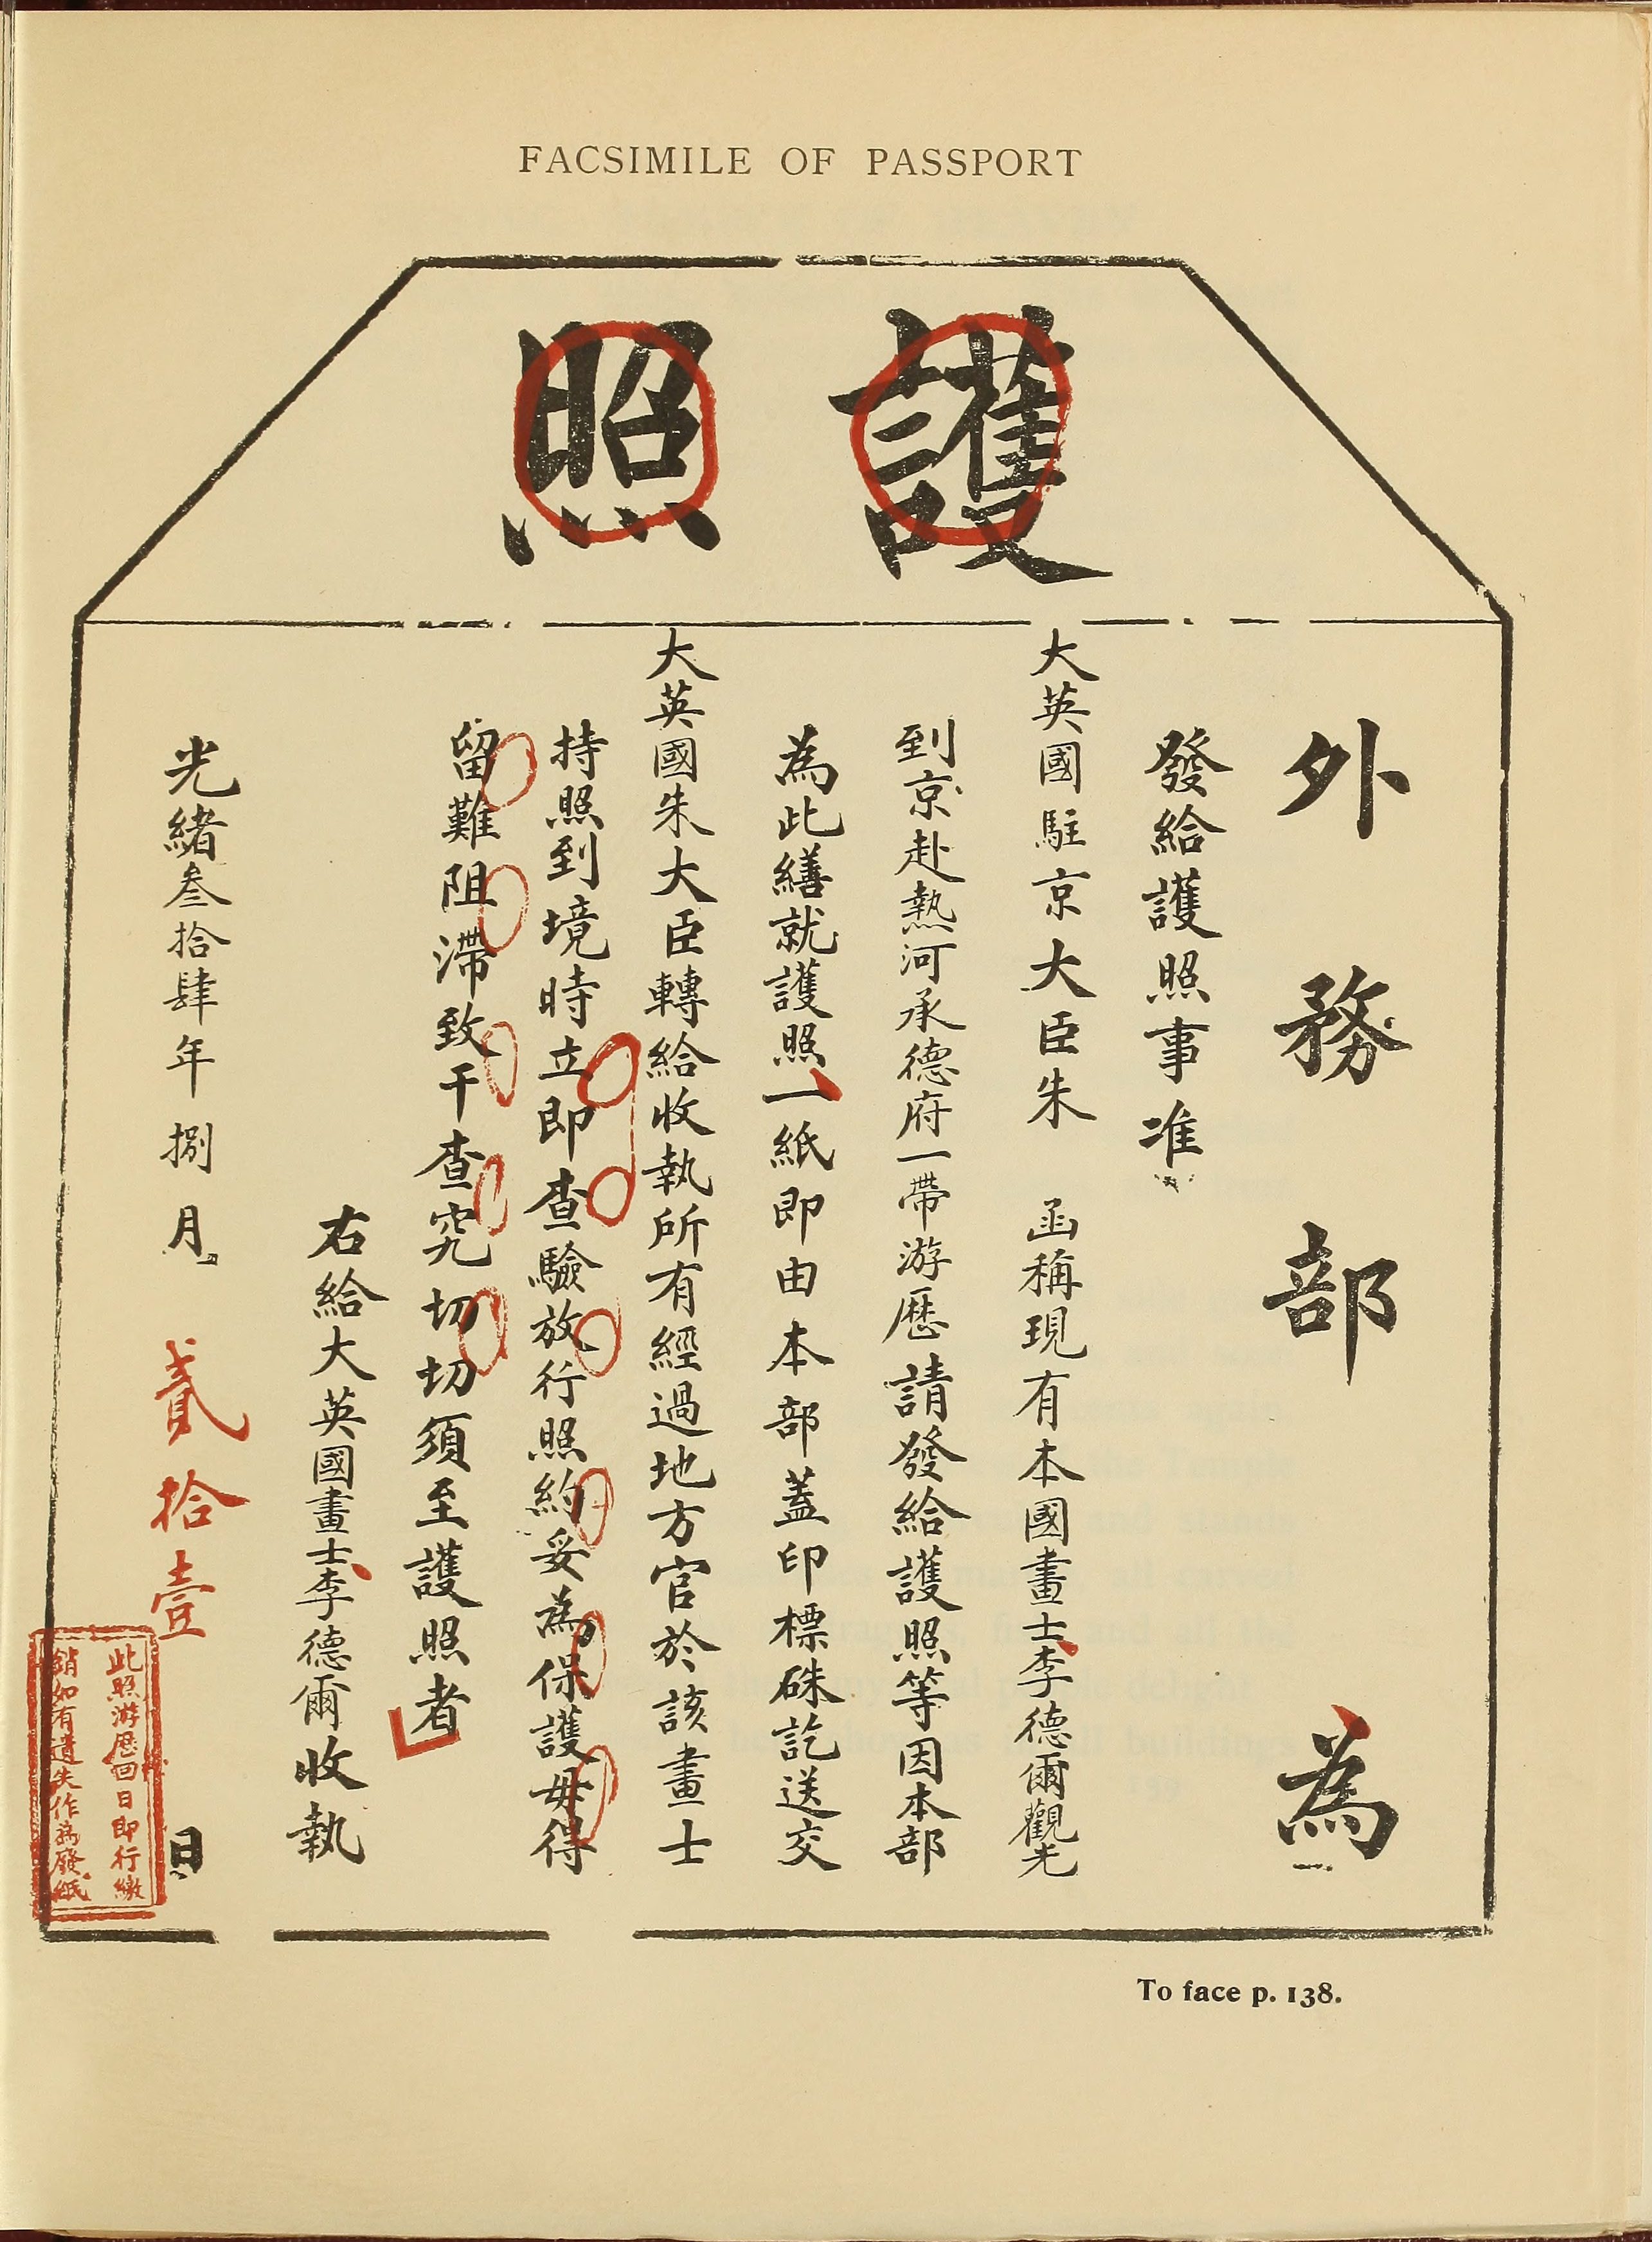 FACSIMILE OF PASSPORT
護照
外務部為
發給護照事准
大英國駐京大臣朱 函稱現有本國畫士李德爾觀光
到京赴熱河承德府一帶游歷請發給護照等因本部
為此繕就護照一紙即由本部蓋印標硃訖送交
大英國朱大臣轉給收執所有經過地方官於該畫士
持照到境時立即查驗放行照約妥為保護毋得
留難阻滯致干查究切切須至護照者
右給大英國畫士李德爾收執
光緒叁拾肆年捌月貳拾壹日
此照游歷回日即行繳
銷如有遺失作為廢紙
To face p. 138.